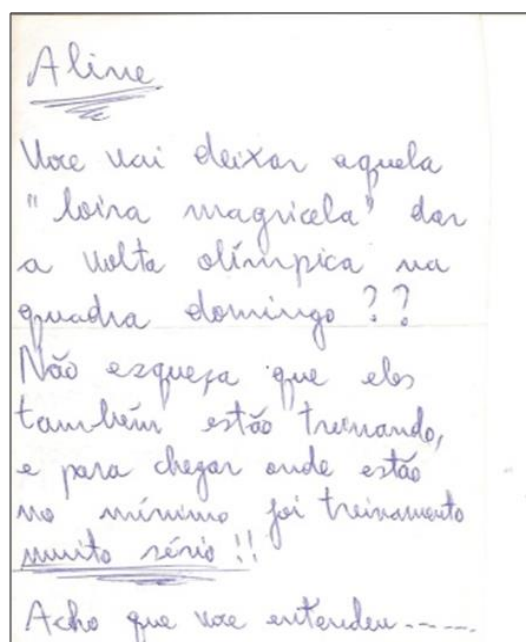 Aline
Voce vai deixar aquela
"loira magricela" dar
a volta olímpica na
quadra domingo ??
Não esqueça que eles
também estão treinando,
e para chegar onde estão
no mínimo foi treinamento
muito sério !!
Acho que voce entendeu-----